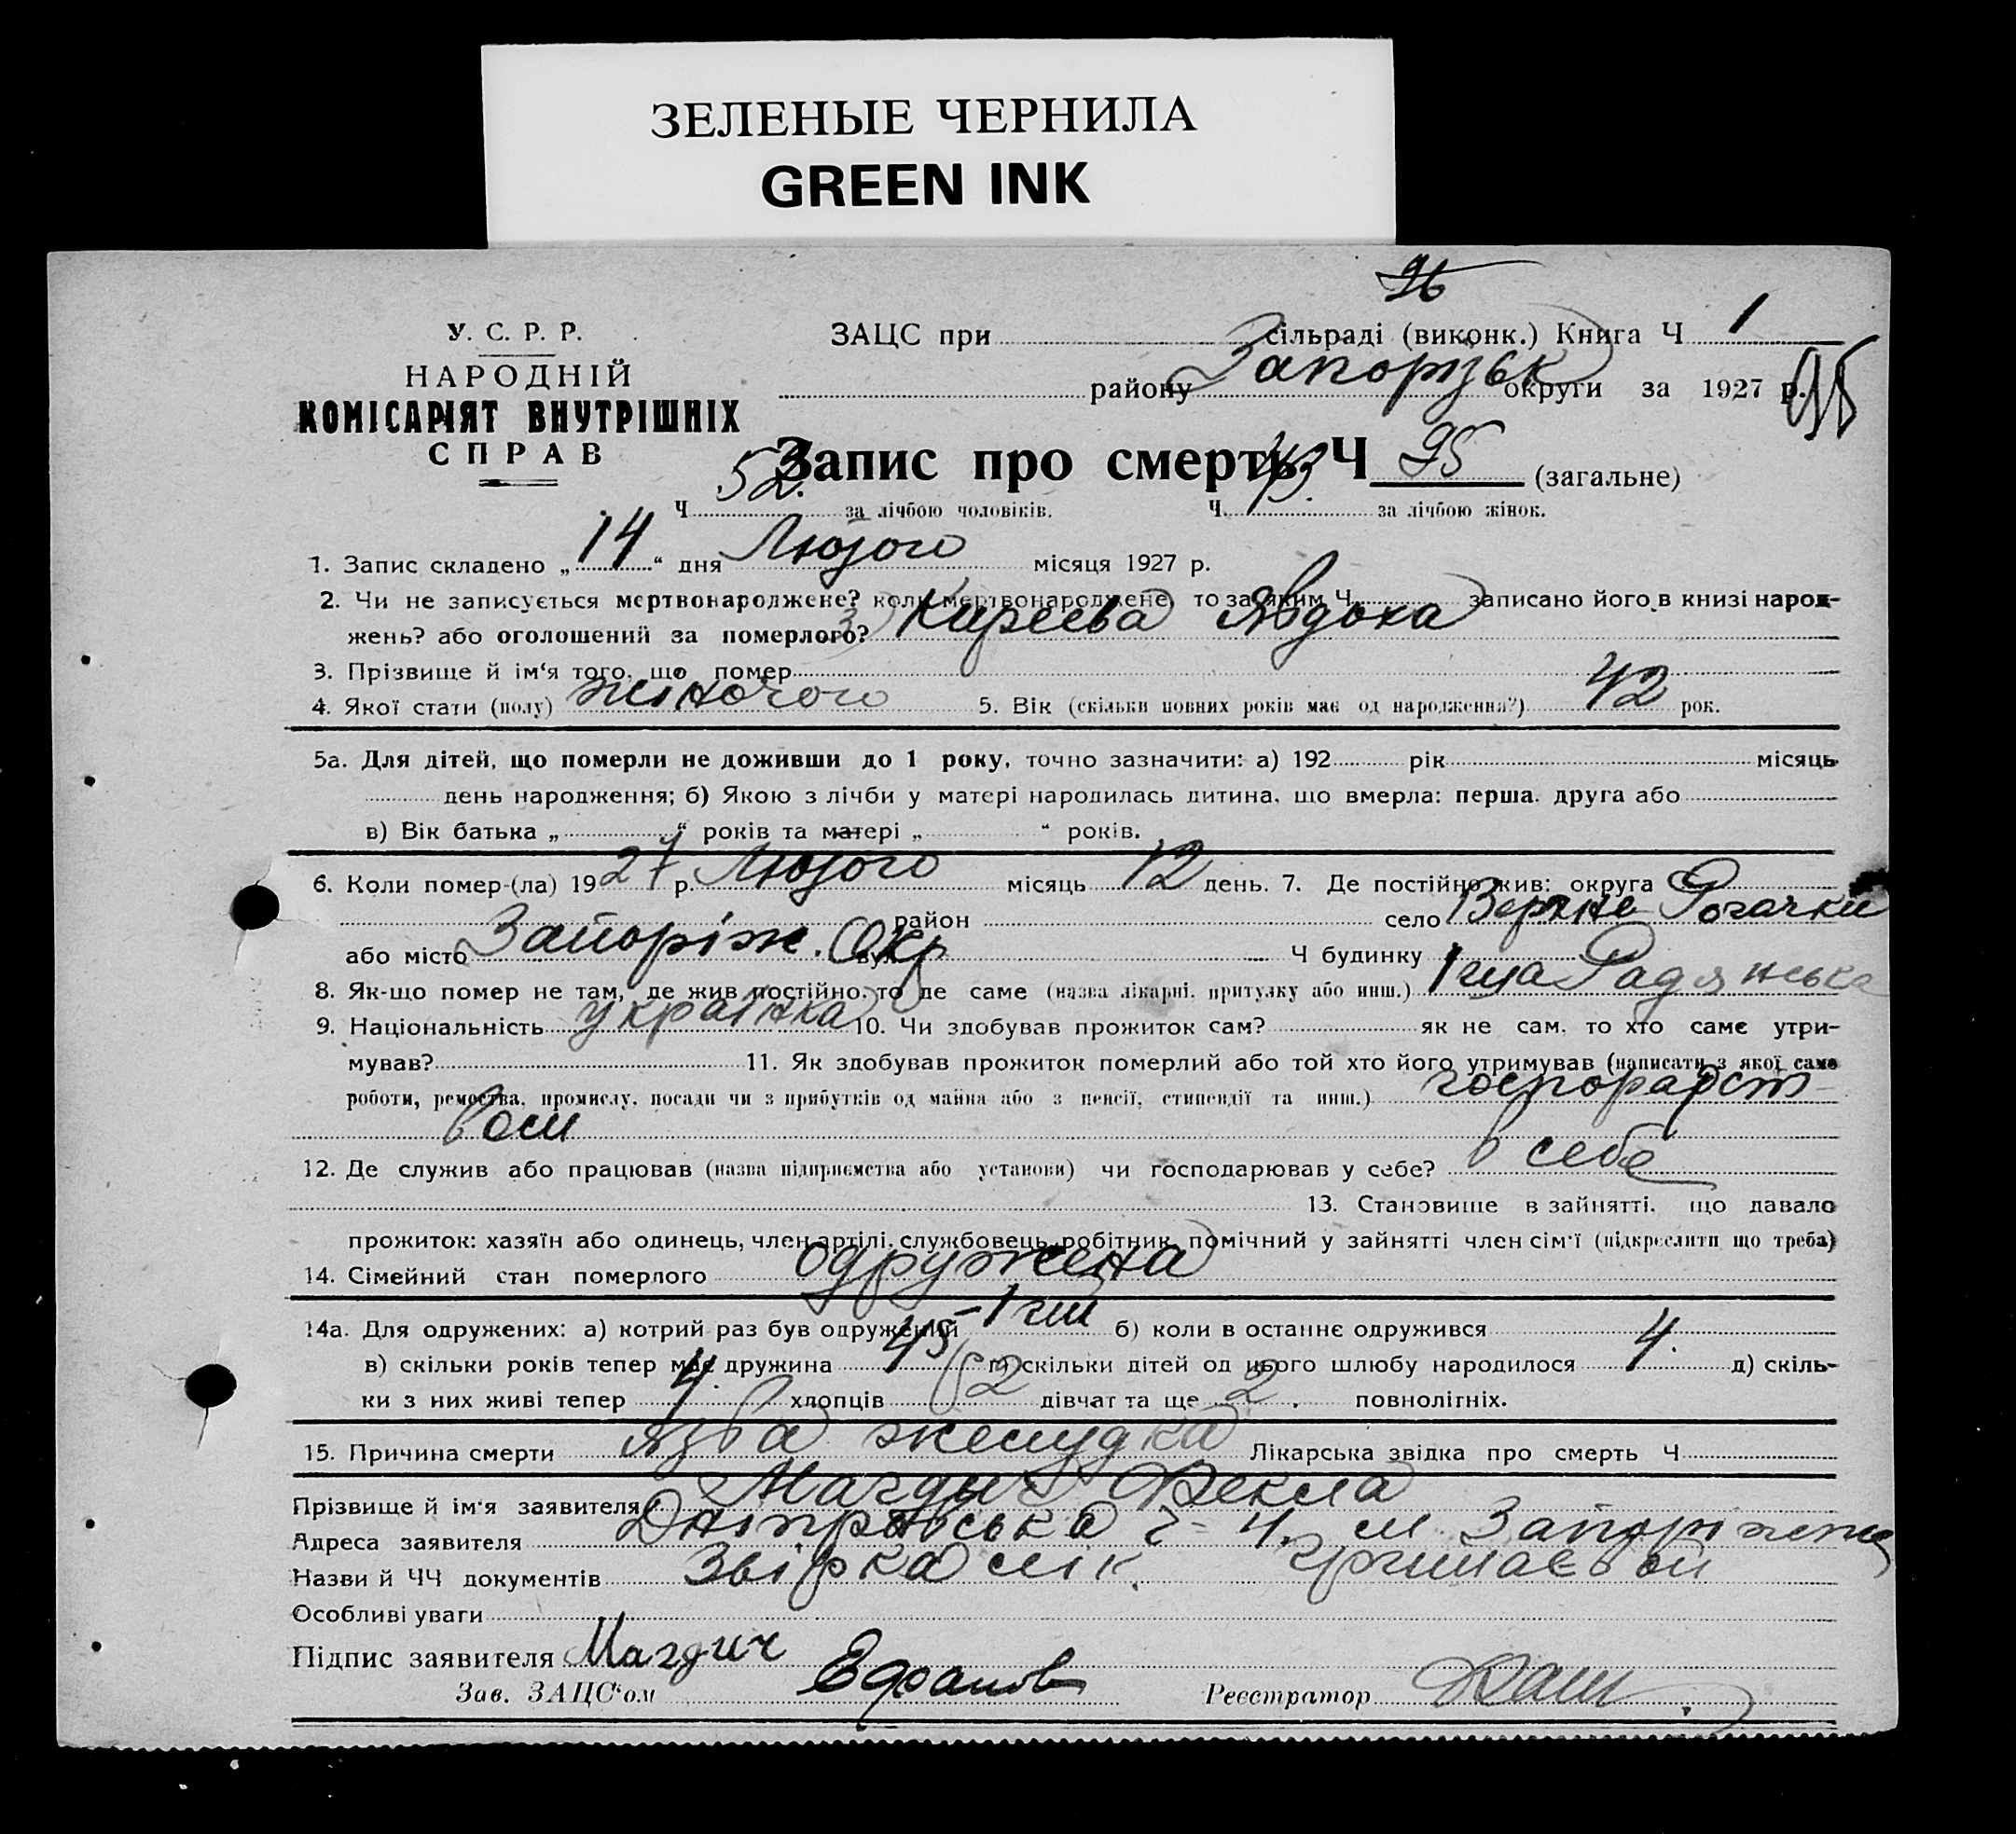 ЗЕЛЕНЫЕ ЧЕРНИЛА
GREEN INK
96
У. С. Р. Р.
НАРОДНІЙ
КОМІСАРІЯТ ВНУТРІШНІХ
СПРАВ
ЗАЦС при сільраді (виконк.) Книга Ч 1
району Запорізьк округи за 1927 р. 95
Запис про смерть Ч 95 (загальне)
Ч 52. за лічбою чоловіків. Ч. 43. за лічбою жінок.
1. Запис складено „14“ дня Лютого місяця 1927 р.
2. Чи не записується мертвонароджене? коли мертвонароджене, то за яким Ч. записано його в книзі народ-
жень? або оголошений за померлого?
3. Прізвище й ім‘я того, що помер Киреева Явдоха
4. Якої стати (полу) жіночого 5. Вік (скільки повних років має од народження?) 42 рок.
5а. Для дітей, що померли не доживши до 1 року, точно зазначити: а) 192 рік місяць
день народження; б) Якою з лічби у матері народилась дитина, що вмерла: перша, друга або
в) Вік батька „ “ років та матері „ “ років.
6. Коли помер-(ла) 1927 р. Лютого місяць 12 день. 7. Де постійно жив: округа
район село Верхне Рогачки
або місто Запоріж. Окр вул. Ч будинку
8. Як-що помер не там, де жив постійно, то де саме (назва лікарні, притулку або инш.) 1ша Радянська
9. Національність українка 10. Чи здобував прожиток сам? як не сам, то хто саме утри-
мував? 11. Як здобував прожиток померлий або той хто його утримував (написати з якої саме
роботи, ремества, промислу, посади чи з прибутків од майна або з пенсії, стипендії та инш.) господарст
вом
12. Де служив або працював (назва підприємства або установи) чи господарював у себе? в себе
13. Становище в зайнятті, що давало
прожиток: хазяїн або одинець, член артілі, службовець, робітник, помічний у зайнятті член сім‘ї (підкреслити що треба)
14. Сімейний стан померлого одружена
14а. Для одружених: а) котрий раз був одружений 1ш б) коли в останнє одружився
в) скільки років тепер має дружина 45 г) скільки дітей од цього шлюбу народилося 4. д) скіль-
ки з них живі тепер 4. хлопців 2 дівчат та ще 2. повнолітніх.
15. Причина смерти язва желудка Лікарська звідка про смерть Ч
Прізвище й ім‘я заявителя Магдич Фекла
Адреса заявителя Дніпрвська 4. м Запоріжжа
Назви й ЧЧ документів Звірка лік.
Особливі уваги
Підпис заявителя Магдич
Зав. ЗАЦС‘ом Ефанов Реєстратор